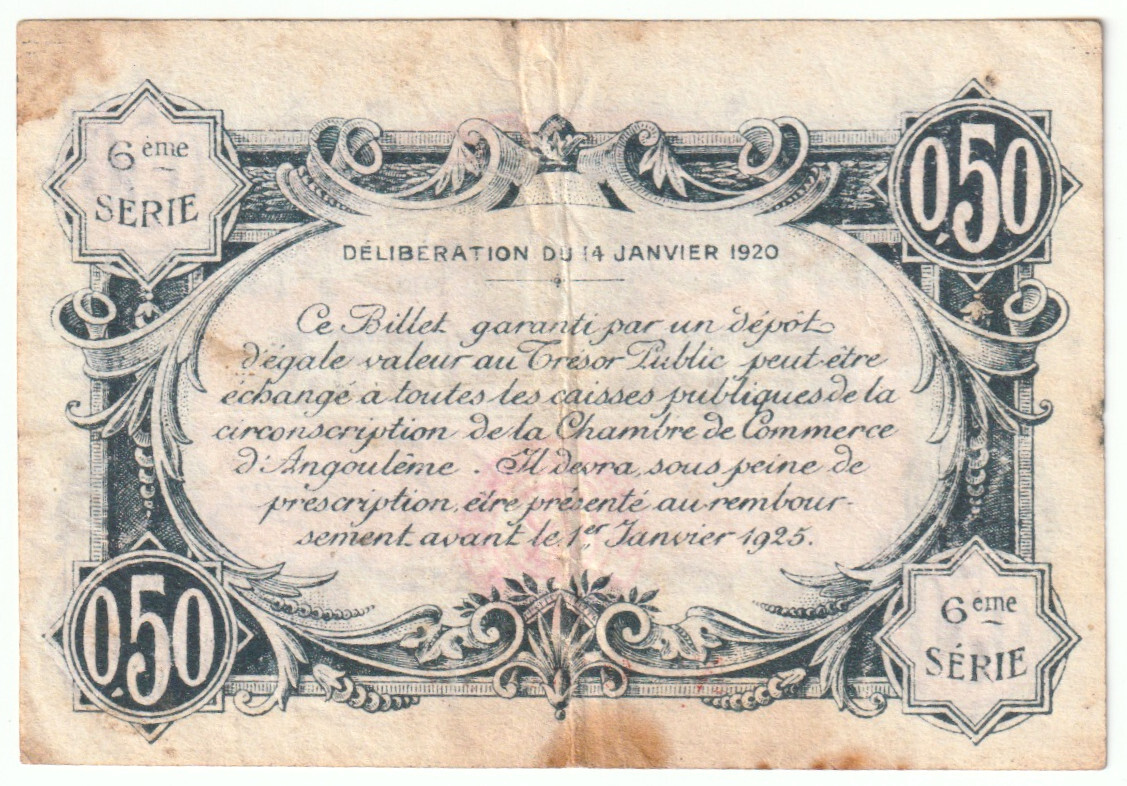 6ème
SÉRIE
0,50
DÉLIBERATION DU 14 JANVIER 1920
Ce Billet garanti par un dépôt
d'égale valeur au Trésor Public peut-être
échangé à toutes les caisses publiques de la
circonscription de la Chambre de Commerce
d'Angoulême. Il devra, sous peine de
prescription, être présenté au rembour-
sement avant le 1er Janvier 1925.
0,50
6ème
SÉRIE